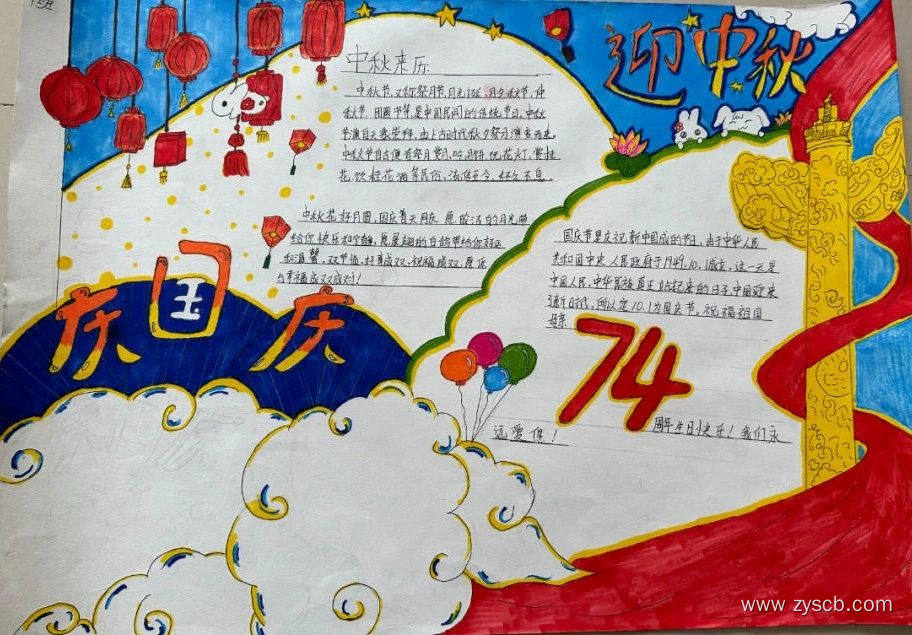 迎中秋
中秋来历
中秋节,又称祭月节、月光诞、月夕、秋节、仲
秋节、团圆节等,是中国民间的传统节日。中秋
节源自天象崇拜,由上古时代秋夕祭月演变而来。
中秋节自古便有祭月、赏月、吃月饼、玩花灯、赏桂
花、饮桂花酒等民俗,流传至今,经久不息。
中秋花好月圆,国庆普天同庆,愿皎洁的月光曲
给你快乐和宁静,愿
和温馨,双节值,好事成双,祝福成双,愿你
幸福成双成对!
国庆节是庆祝新中国成的节日,由于中华人民
共和国中央人民政府于1949.10.1成立,这一天是
中国人民、中华民族真正站起来的日子,中国迎来
新时代,所以定10.1为国庆节。祝福祖国
母亲
74
周年生日快乐!我们永
远爱你!
庆国庆
www.zyscb.com